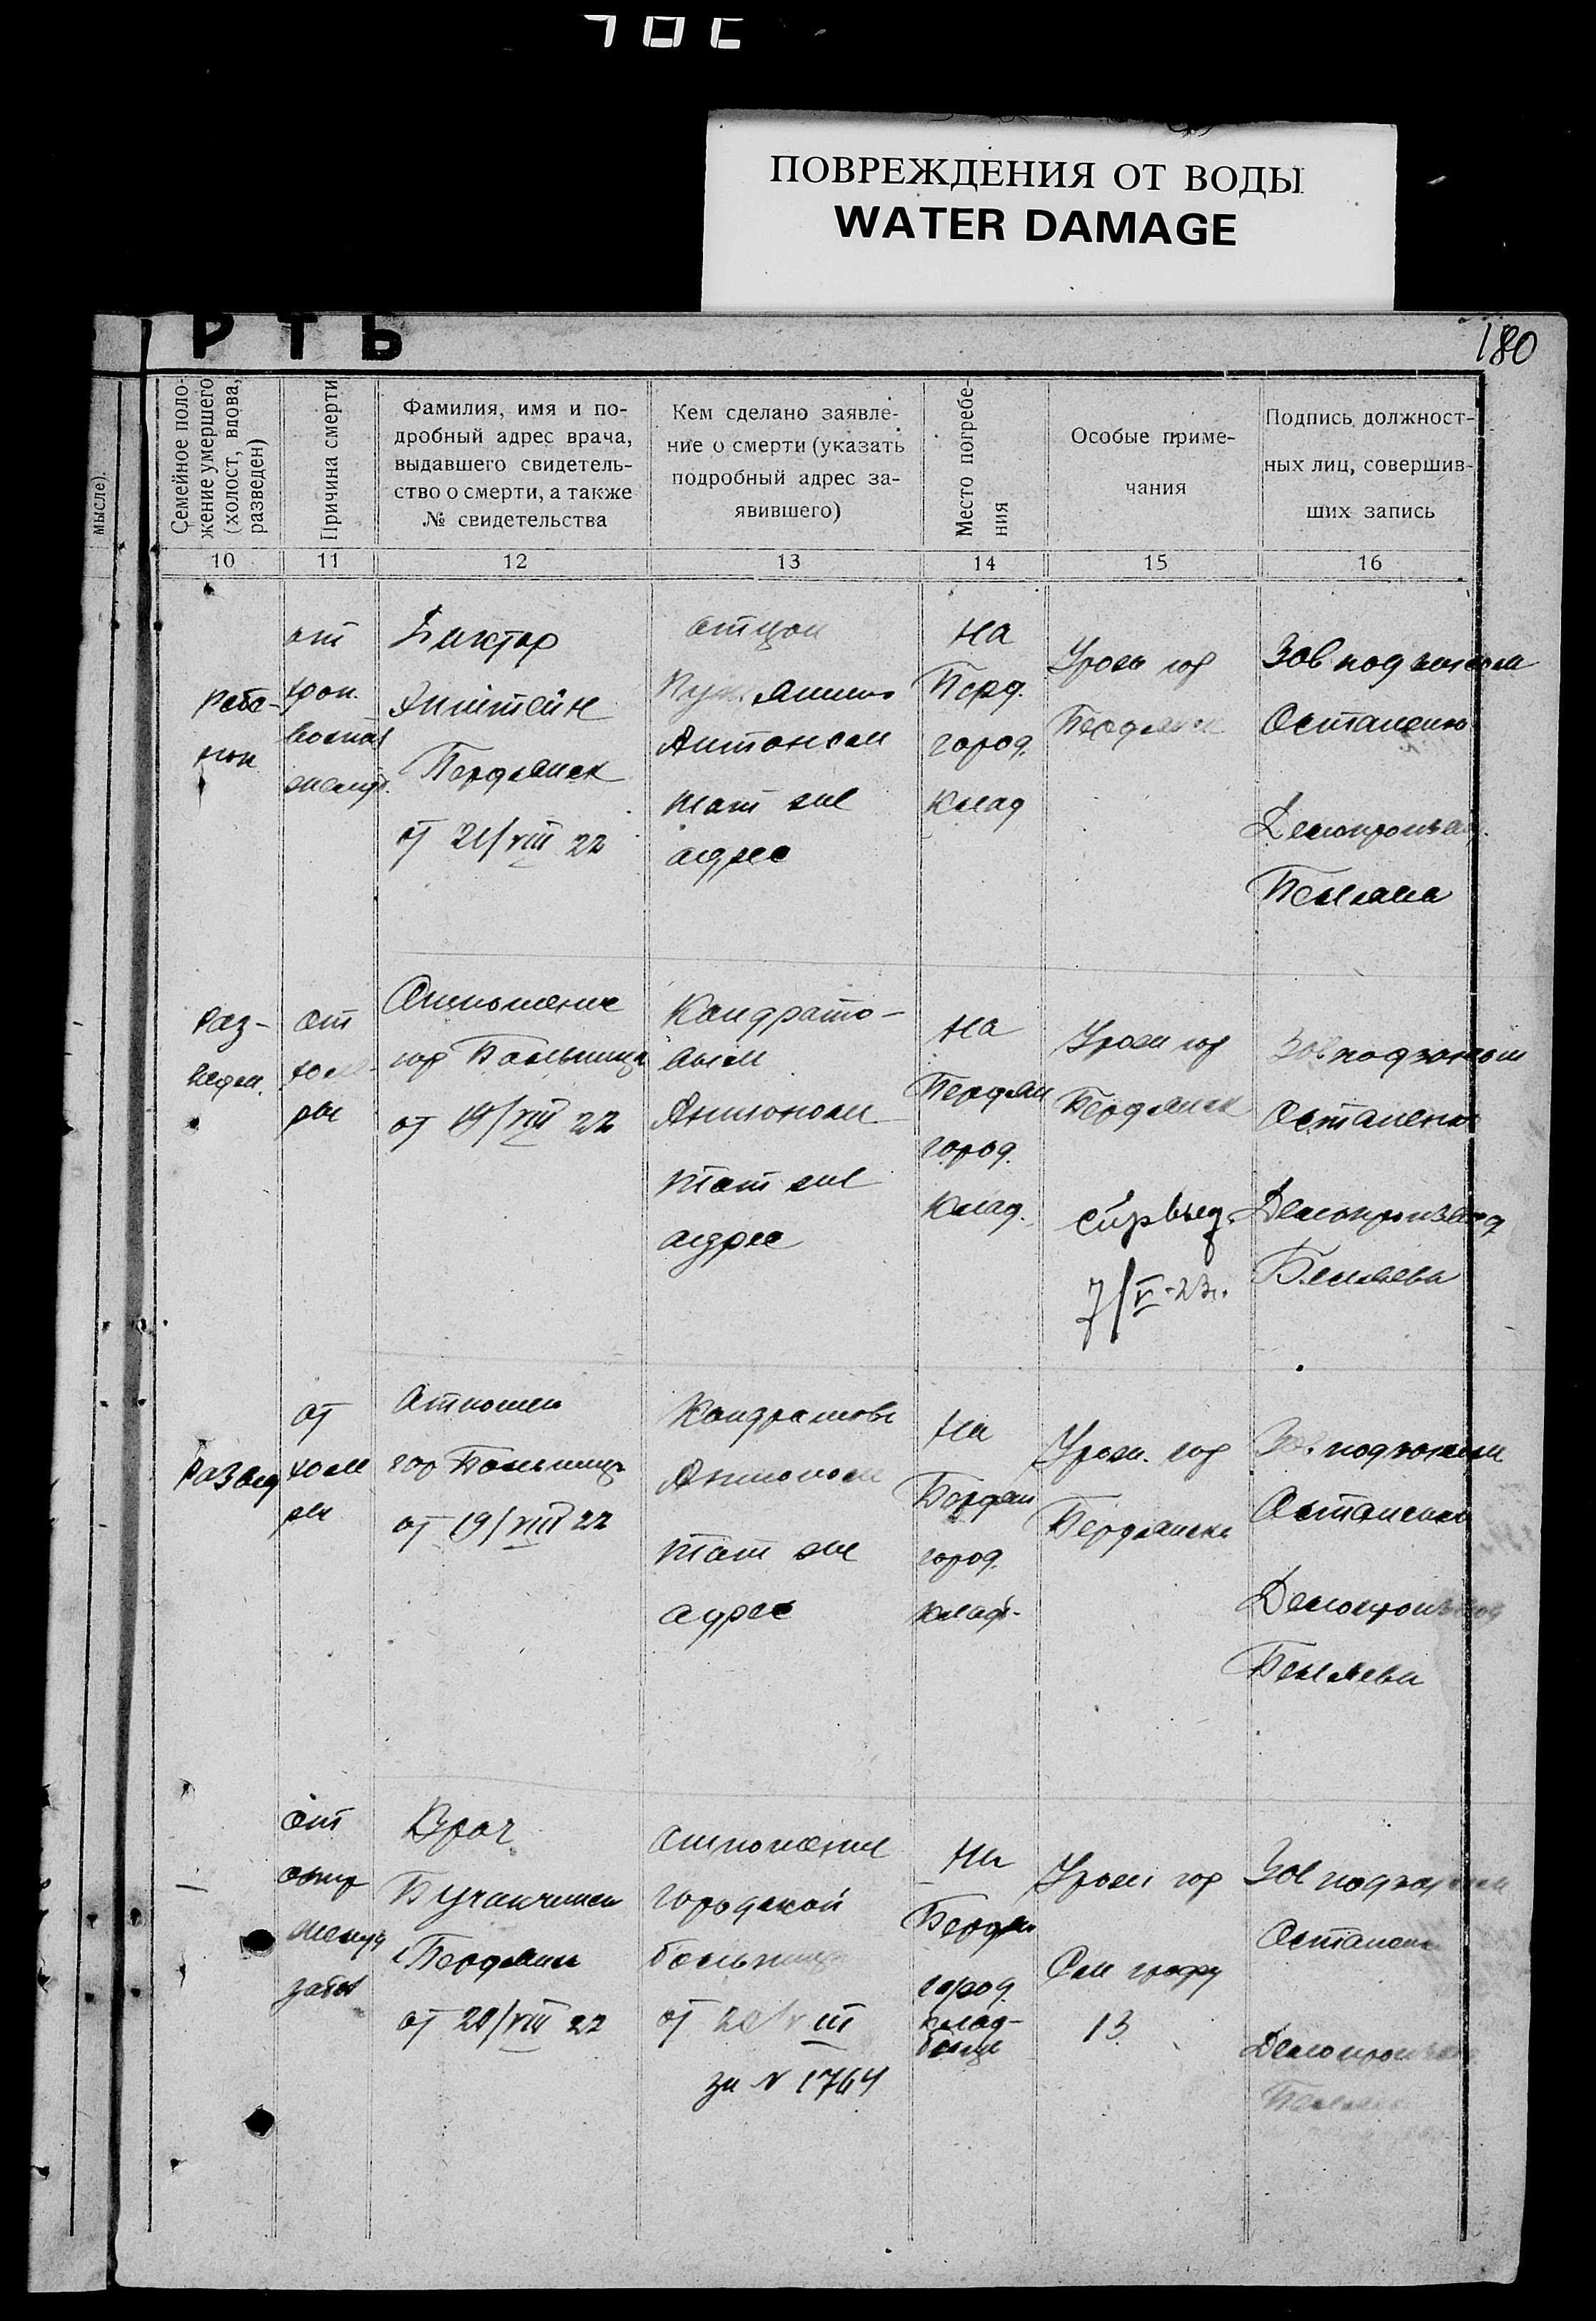 ПОВРЕЖДЕНИЯ ОТ ВОДЫ
WATER DAMAGE
РТЬ
180
мысле).
Семейное поло-
жение умершего
(холост, вдова,
разведен)
Причина смерти
Фамилия, имя и по-
дробный адрес врача,
выдавшего свидетель-
ство о смерти, а также
№ свидетельства
Кем сделано заявле-
ние о смерти (указать
подробный адрес за-
явившего)
Место погребе-
ния
Особые приме-
чания
Подпись должност-
ных лиц, совершив-
ших запись
10
11
12
13
14
15
16
Ребе-
нок
от
Доктор
Эпштейн
Бердянск
от 21/VIII 22
отцом
Антоном
там же
адрес
На
Берд.
город.
клад
Урож гор
Бердянск
Зав подзагсом
Остапенко
Делопроизвод.
Беляева
Раз-
веден.
от
холе-
ры
Отношение
гор Больницы
от 19/VIII 22
Кондрато-
вым
Антоном
там же
адрес
На
Бердян
город.
клад.
Урож гор
Бердянск
7/V-23г.
Зав подзагсом
Остапенко
Делопроизвод
Беляева
Развед
от
холе
ры
Отношен
гор Больницы
от 19/VIII 22
Кондратовы
Антоном
там же
адрес
На
Бердян
город.
клад.
Урож. гор
Бердянска
Зав. подзагсом
Остапенко
Делопроизвод
Беляева
от
Врач
Бердянск
от 20/VIII 22
отношение
городской
больницы
от 20/VIII
за N 1764
На
Бердян
город.
клад-
бище
Урож гор
См графу
13
Зав подзагсом
Остапенко
Делопроизвод
Беляева